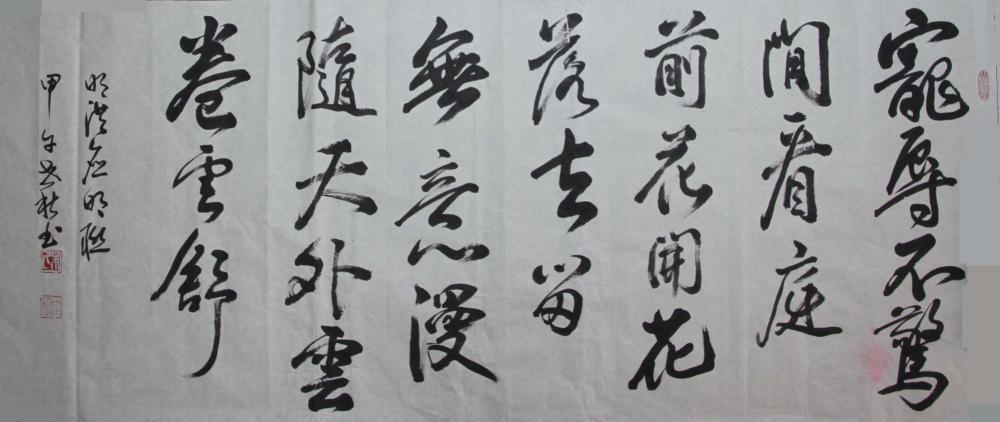 寵辱不驚
閒看庭
前花開花
落去留
無意漫
隨天外雲
卷雲舒
明洪应明联
甲午冬秋书